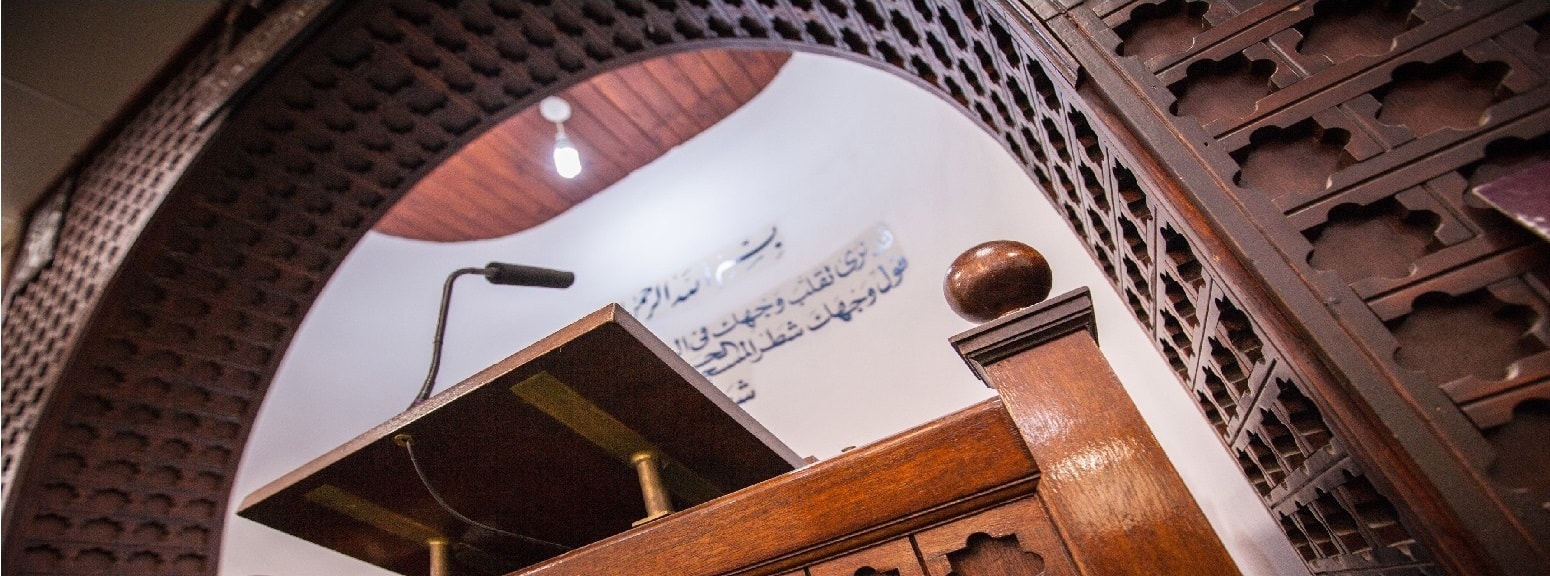 بسم الله الرحمن
قد نرى تقلب وجهك في ال
فول وجهك شطر المسجد